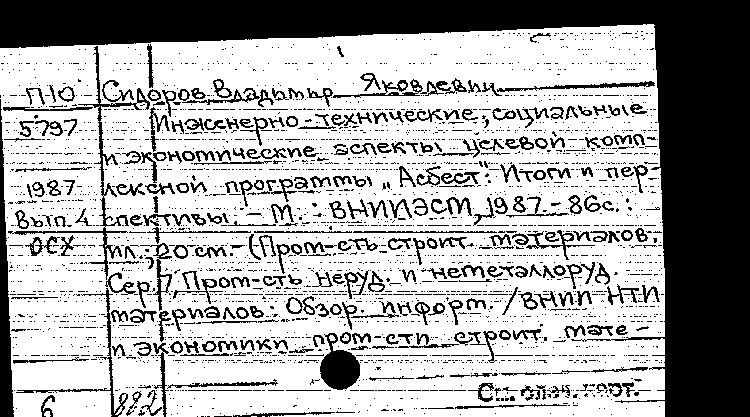 П10 Сидоров, Владимир Яковлевич.
5797 Инженерно-технические, социальные
и экономические аспекты целевой комп-
1987 лексной программы „Асбест": Итоги и пер-
Вып. 4 спективы. - М. : ВНИИЭСМ, 1987. - 86с. :
ОСХ ил.; 20 см. - (Пром-сть строит. материалов.
Сер. 7, Пром-сть неруд. и неметаллоруд.
материалов: Обзор. информ. / ВНИИ НТИ
и экономики пром-сти строит. мате-
См. след. карт.
6 882